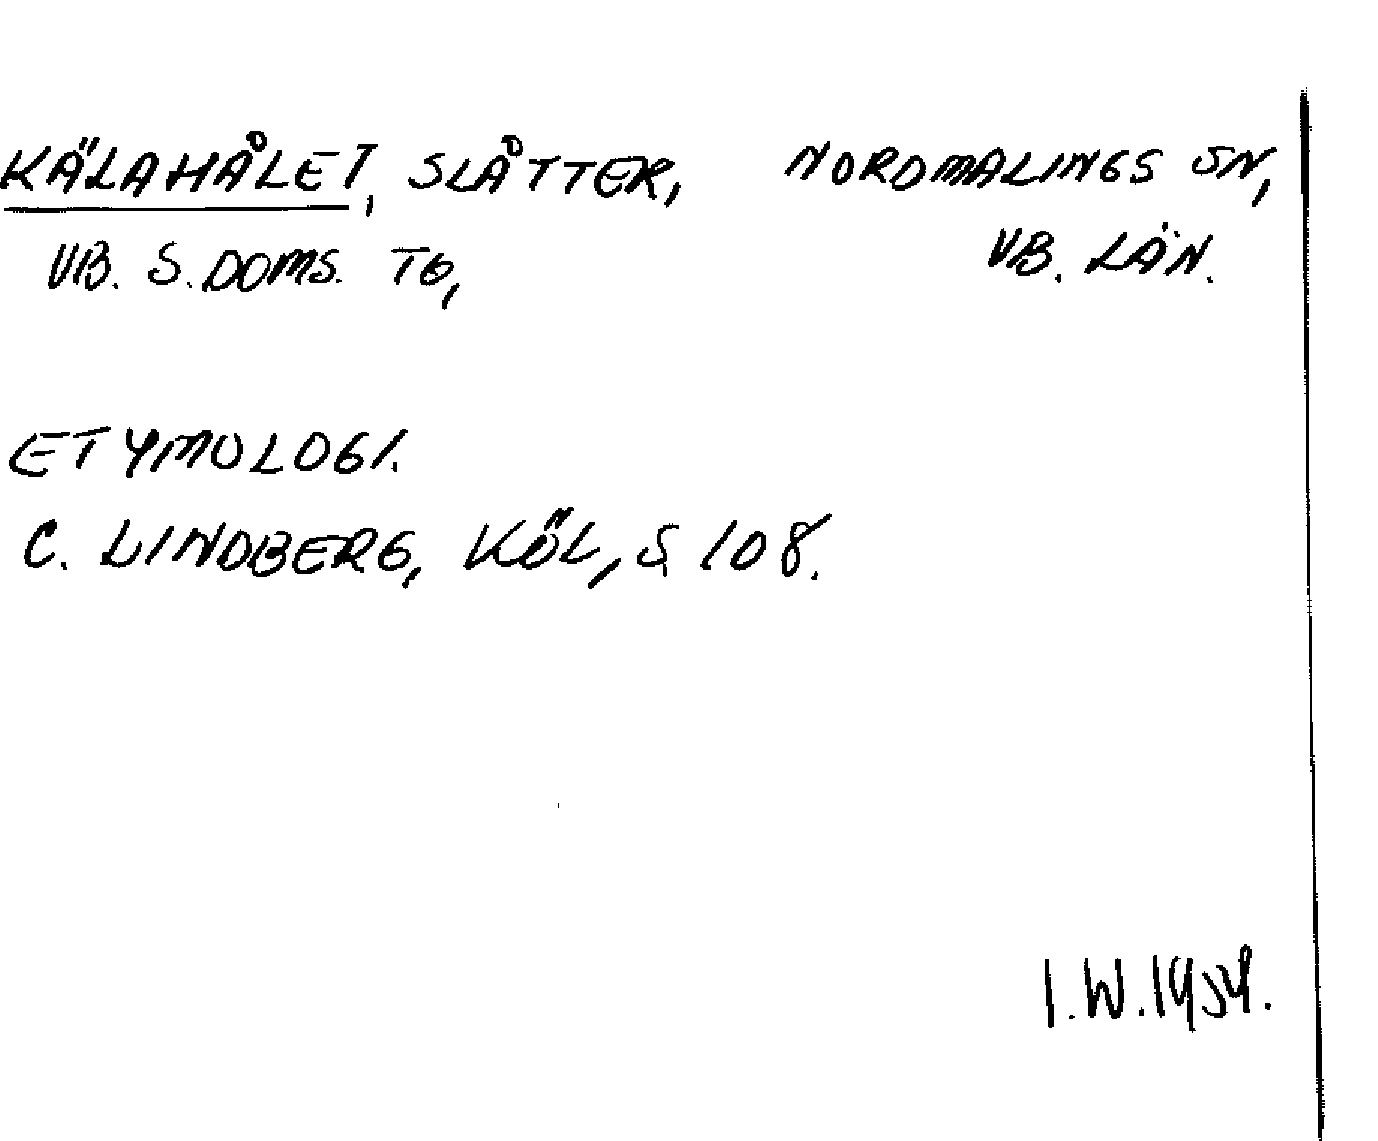 KÄLAHÅLET, SLÅTTER, NORDMALINGS SN,
VB. S. DOMS. TG, VB. LÄN.
ETYMOLOGI.
C. LINDBERG, KÖL, S. 108.
I.W.1959.